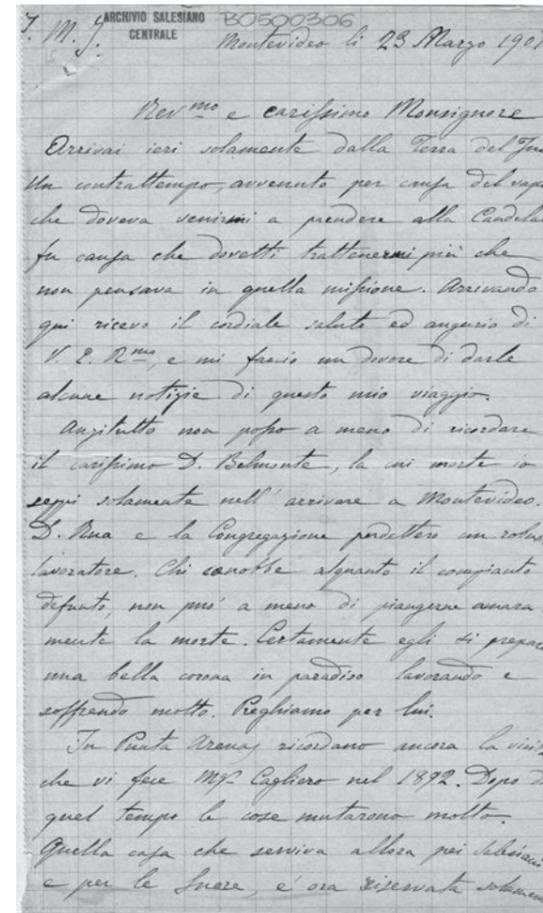 J. M. J.
ARCHIVIO SALESIANO
CENTRALE
B0500306
Montevideo li 23 Marzo 190
Rev.mo e carissimo Monsignore
Arrivai ieri solamente dalla Terra del Fuo
Un contrattempo, avvenuto per causa del vapo
che doveva venirmi a prendere alla Candela
fu causa che dovetti trattenermi più che
non pensava in quella missione. Arrivando
qui ricevo il cordiale saluto ed augurio di
V. E. R.ma, e mi faccio un dovere di darle
alcune notizie di questo mio viaggio.
Anzitutto non posso a meno di ricordare
il carissimo D. Belmonte, la cui morte io
seppi solamente nell' arrivare a Montevideo.
D. Rua e la Congregazione perdettero un robus
lavoratore. Chi conobbe alquanto il compianto
defunto, non può a meno di piangerne amara
mente la morte. Certamente egli si prepar
una bella corona in paradiso lavorando e
soffrendo molto. Preghiamo per lui.
In Punta Arenas ricordano ancora la visit
che vi fece Mgr Cagliero nel 1892. Dopo d
quel tempo le cose mutarono molto.
Quella casa che serviva allora pei Salesiani
e per le Suore, e' ora riservata solamen